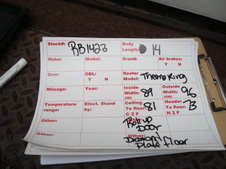 Stock#: RB1423 Body Length: 14
Make: Model: Brand: Air brakes: Y N
Size: CDL: Y N Reefer Model: Thermo King
Mileage: Year: Inside Width: 89 Outside Width: 96
Temperature range: Elect. Stand by: Ceiling To floor: 81 Header To floor: 73
Other: Roll up Door
Other: Diamond Plate Floor